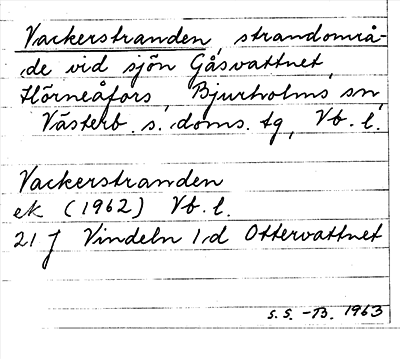 Vackerstranden, strandområ-
de vid sjön Gåsvattnet,
Hörneåfors, Bjurholms sn,
Västerb. s. doms. tg, Vb. l.
Vackerstranden
ek (1962) Vb. l.
21 J Vindeln 1d Ottervattnet
S. S. -B. 1963